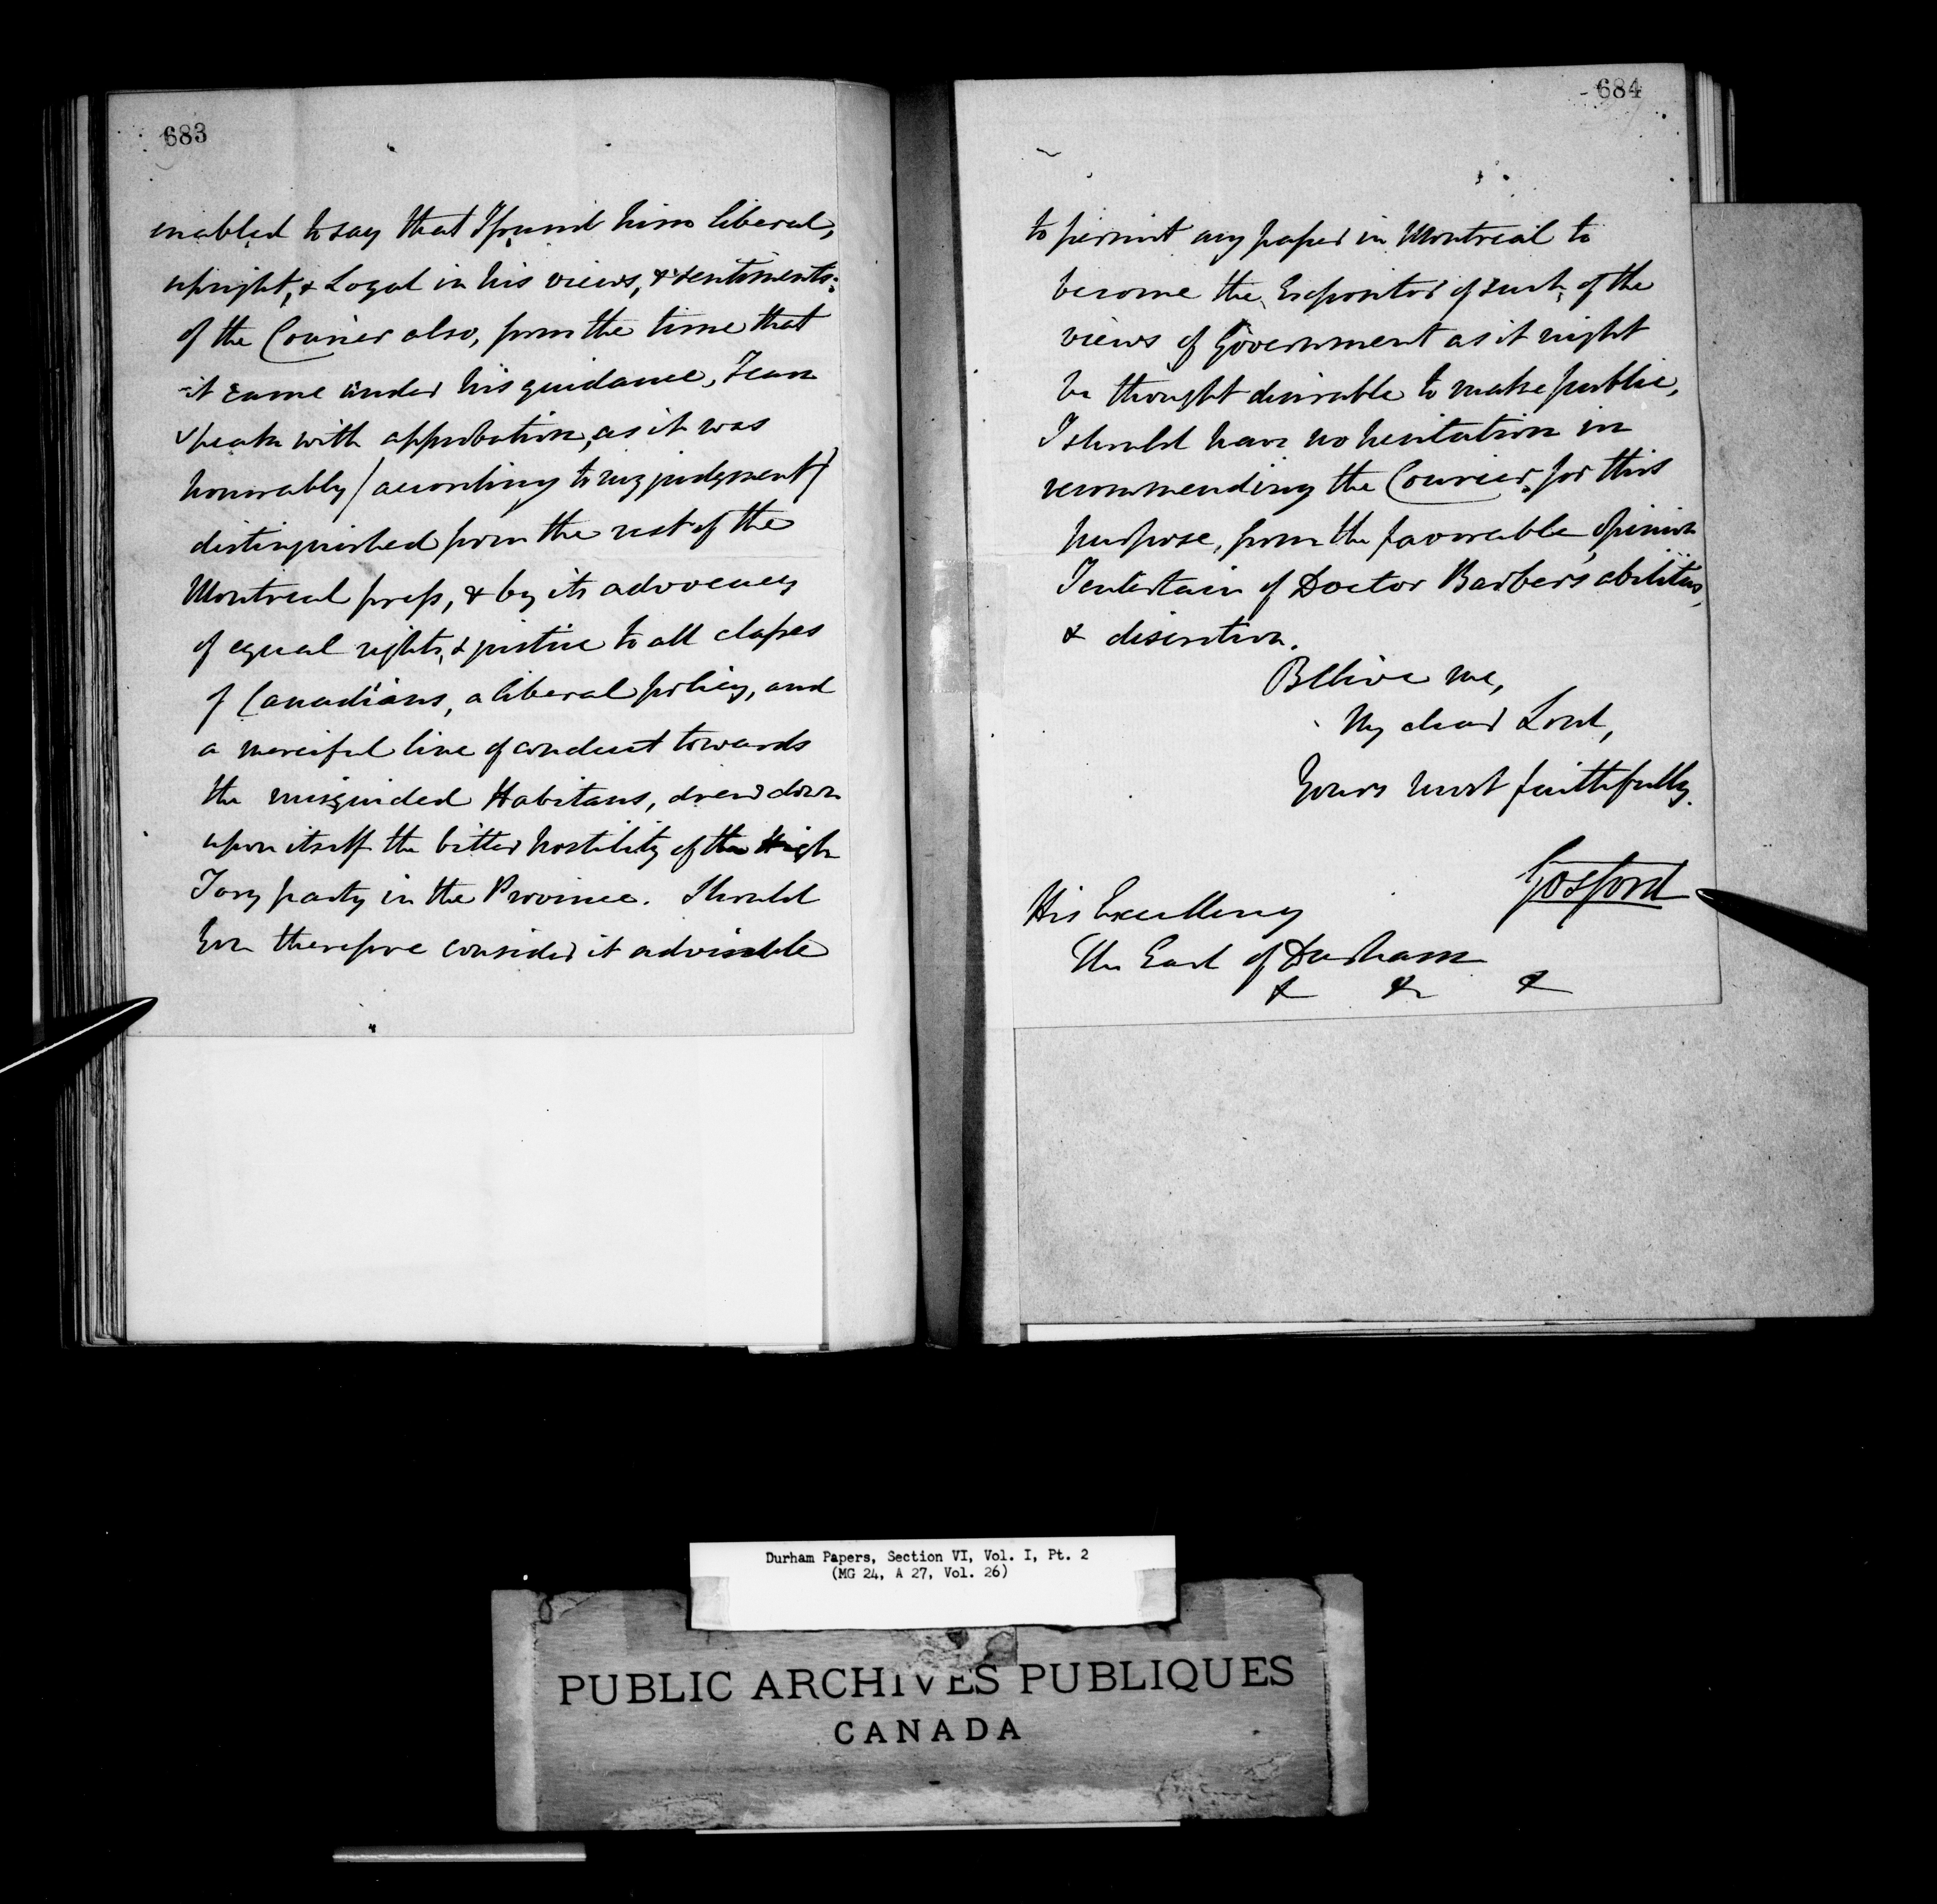 683
enabled to say that I found him liberal,
upright, & Loyal in his views, & sentiments:
of the Courier also, from the time that
it came under his guidance, I can
speak with approbation, as it was
honorably (according to my judgment)
distinguished from the rest of the
Montreal press, & by its advocacy
of equal rights, & justice to all classes
of Canadians, a liberal policy, and
a merciful line of conduct towards
the misguided Habitans, drew down
upon itself the bitter hostility of the High
Tory party in the Province. Should
You therefore consider it advisable
684
to permit any paper in Montreal to
become the Expositor of such, of the
views of Government as it might
be thought desirable to make public,
I should have no hesitation in
recommending the Courier, for this
purpose, from the favorable opinion
I entertain of Doctor Barber's abilities,
& discretion.
Believe me,
My dear Lord,
Yours most faithfully.
Gosford
His Excellency
The Earl of Durham
& & &
Durham Papers, Section VI, Vol. I, Pt. 2
(MG 24, A 27, Vol. 26)
PUBLIC ARCHIVES PUBLIQUES
CANADA